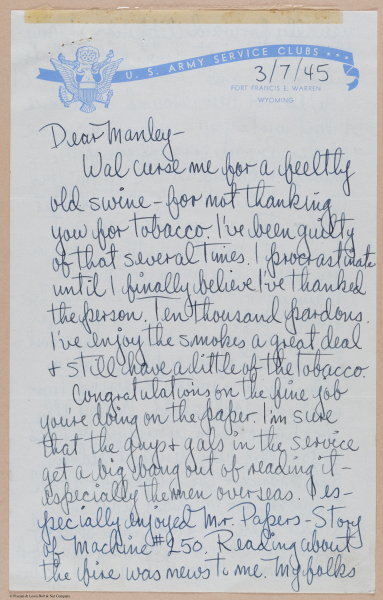 U. S. ARMY SERVICE CLUBS
3/7/45
FORT FRANCIS E. WARREN
WYOMING
Dear Manley-
Wal curse me for a feelthy
old swine - for not thanking
you for tobacco. I've been guilty
of that several times. I procrastinate
until I finally believe I've thanked
the person. Ten thousand pardons.
I've enjoy the smokes a great deal
+ still have a little of the tobacco.
Congratulations on the fine job
you're doing on the paper. I'm sure
that the guys + gals in the service
get a big bang out of reading it -
especially the men overseas. I es-
pecially enjoyed Mr. Papers - Story
of Machine #250. Reading about
the fire was news to me. My folks